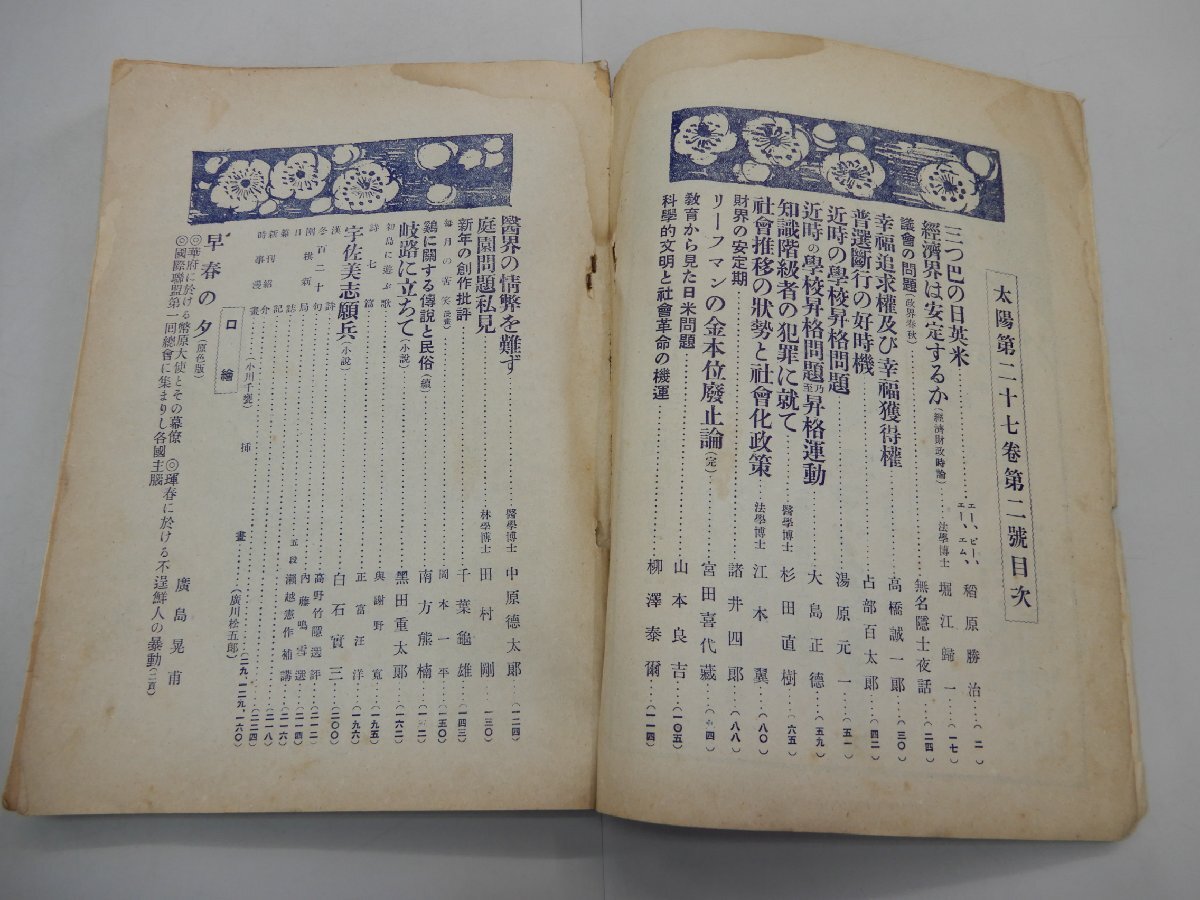 太陽第二十七卷第二號目次
三つ巴の日英米……エー、ピー、エー、エム、稻原勝治…(二)
經濟界は安定するか(經濟財政時論)…法學博士 堀江歸一…(一七)
議會の問題(政界春秋)……無名隱士夜話…(二四)
幸福追求權及び幸福獲得權……高橋誠一郎…(三〇)
普選斷行の好時機……占部百太郎…(四二)
近時の學校昇格問題……湯原元一…(五一)
近時の學校昇格問題乃至昇格運動……大島正德…(五九)
知識階級者の犯罪に就て……醫學博士 杉田直樹…(六五)
社會推移の狀勢と社會化政策…法學博士 江木翼…(八〇)
財界の安定期……諸井四郎…(八八)
リーフマンの金本位廢止論(完)……宮田喜代藏
教育から見た日米問題……山本良吉…(一〇五)
科學的文明と社會革命の機運……柳澤泰爾…(一一四)
醫界の情弊を難ず……醫學博士 中原德太郎…(一二四)
庭園問題私見……林學博士 田村剛…(一三〇)
新年の創作批評……千葉龜雄…(一四三)
每月の苦笑(漫畫)……岡本一平…(一五〇)
鷄に關する傳說と民俗(續)……南方熊楠
岐路に立ちて(小說)……黑田重太郎…(一六二)
初島に遊ぶ歌……與謝野寬…(一九五)
詩七篇……正富汪洋…(一九六)
宇佐美志願兵(小說)……白石實三…(二〇〇)
漢詩
冬百二十句……內藤鳴雪選
圍棋新局……五段 瀨越憲作補講
日誌
雜記
新刊紹介
時事漫畫……(小川千甕)…(二二四)
挿畫……(廣川松五郎)…(二九、一二九、一六〇)
口繪
早春の夕(原色版)……廣島晃甫
◎華府に於ける幣原大使とその幕僚 ◎琿春に於ける不逞鮮人の暴動(二頁)
◎國際聯盟第一回總會に集まりし各國主腦